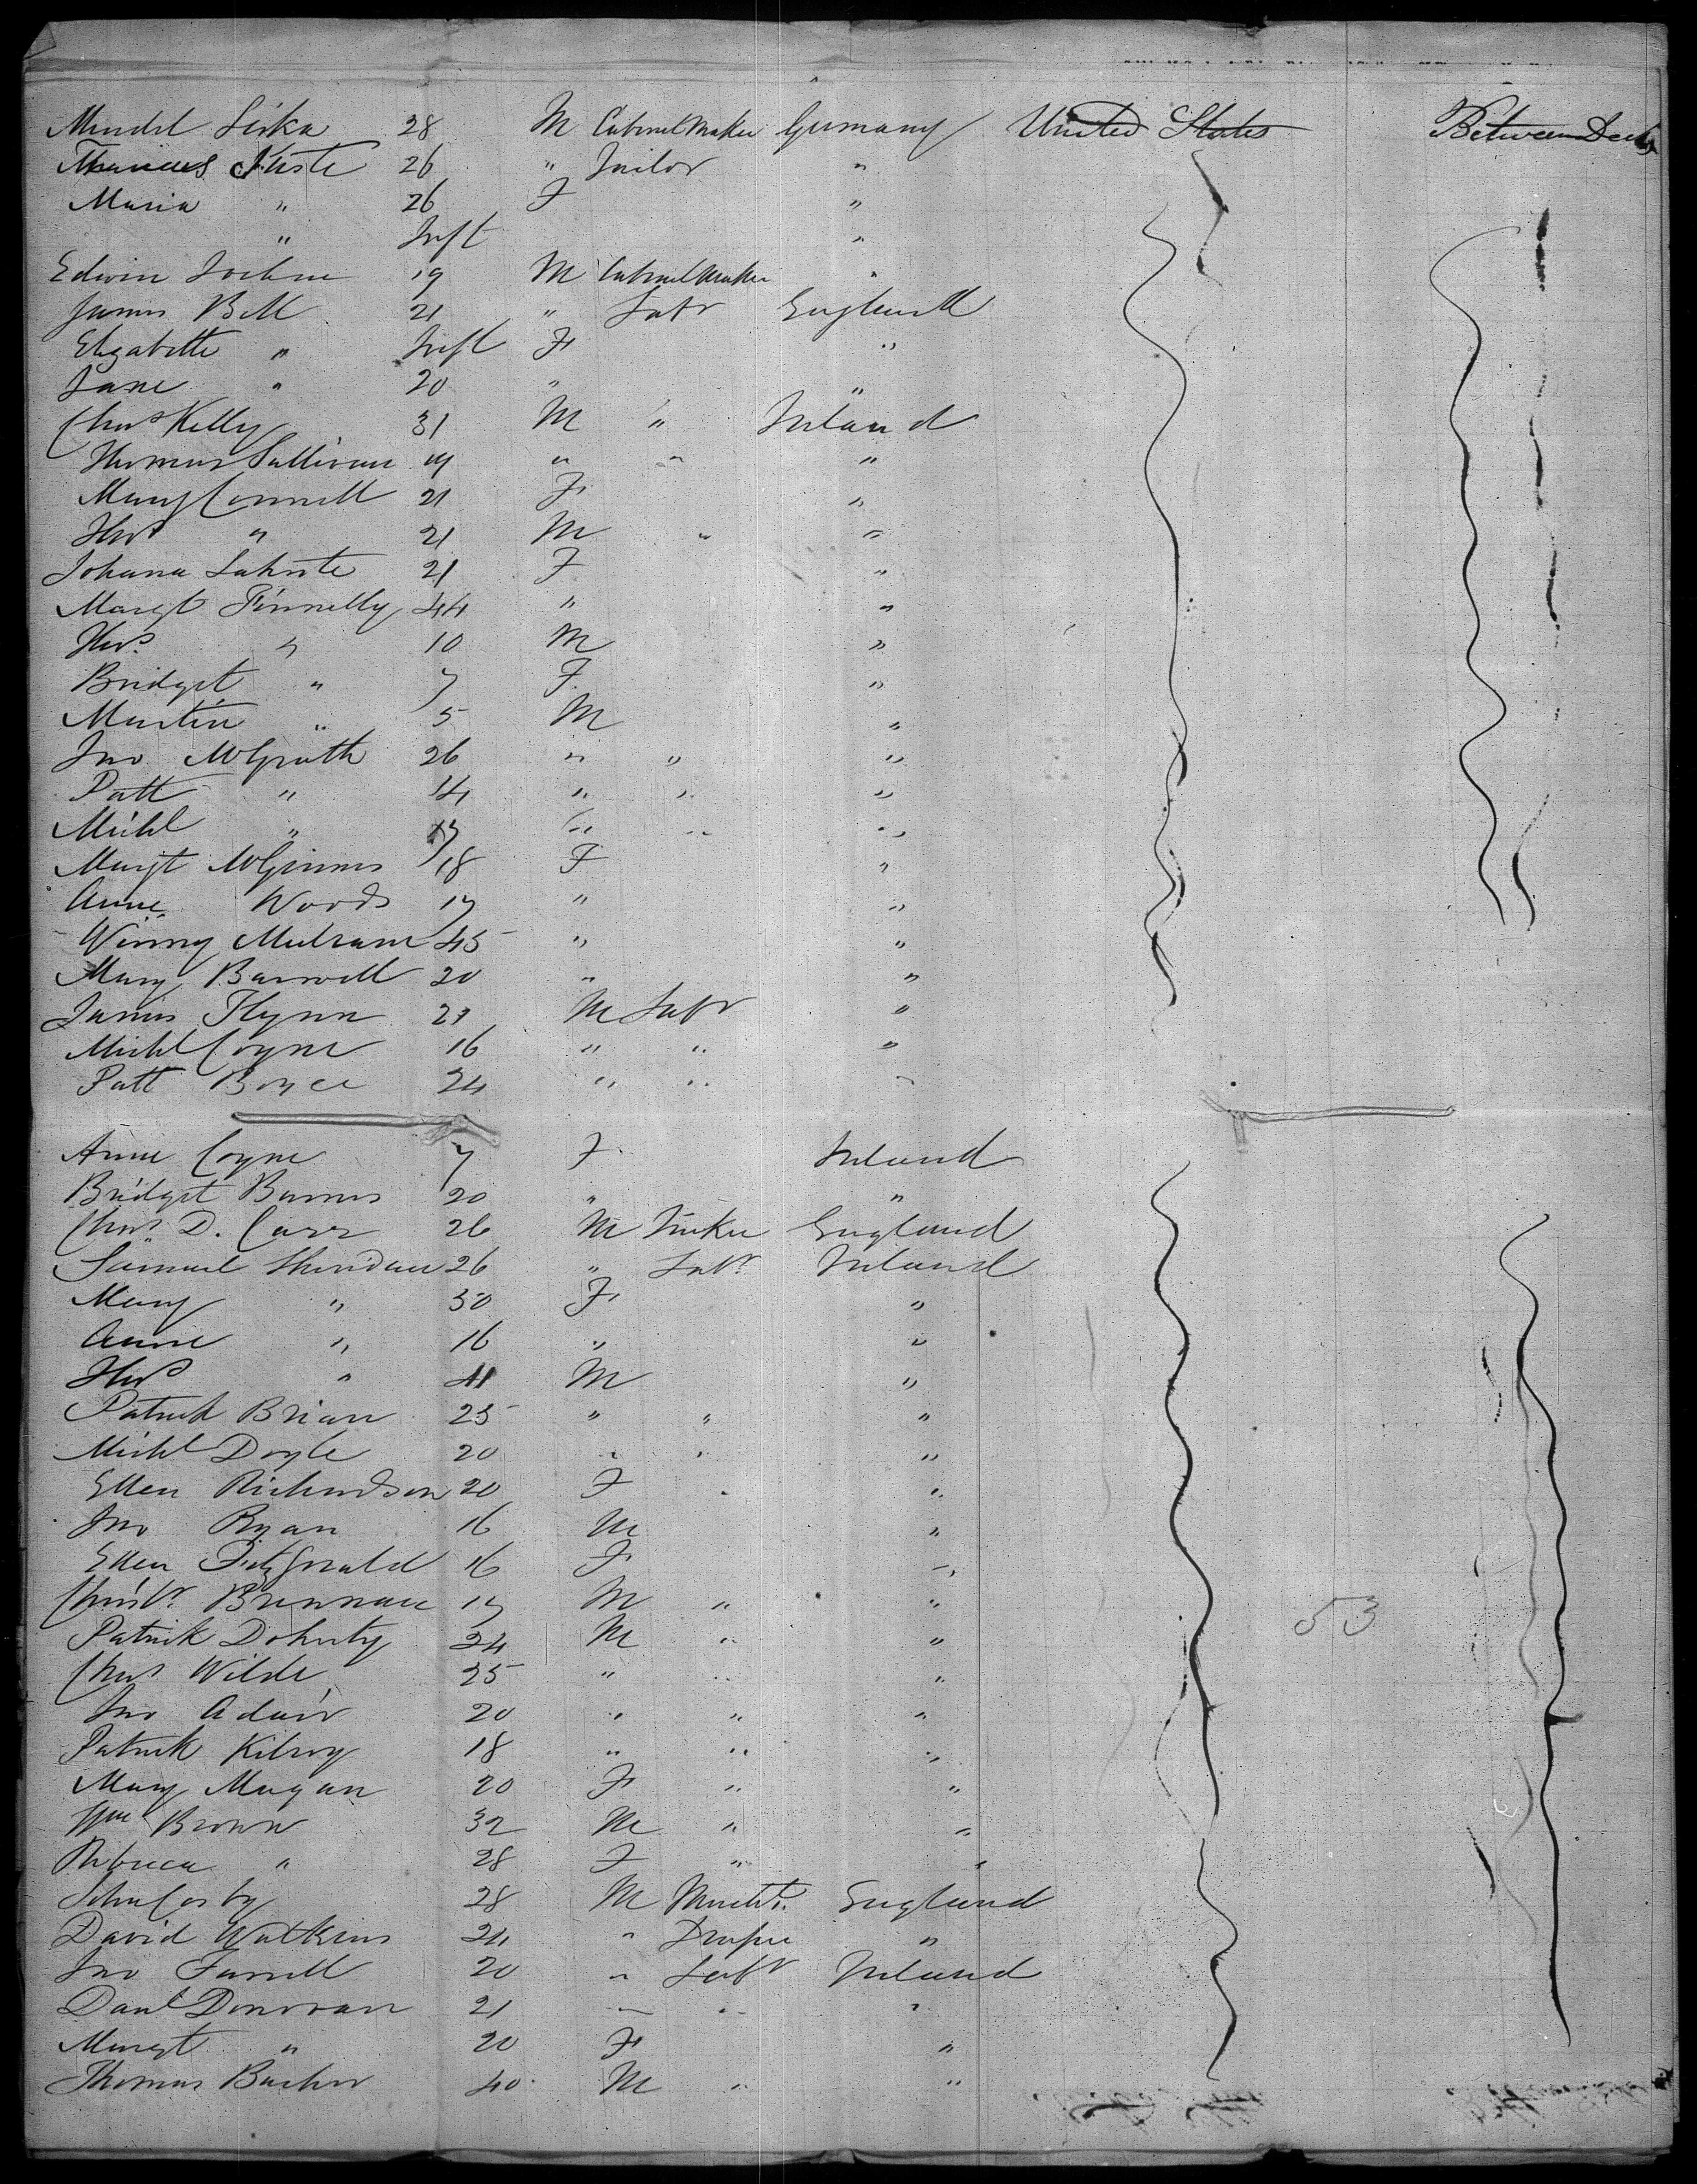 Mendel Liska 28 M Cabinet Maker Germany United States Between Decks
Juste 26 " Tailor "
Maria " 26 F "
" Inft "
Edwin 19 M Cabinet Maker "
James Bell 21 " Labr England
Elizabeth " Inft F "
Jane " 20 " "
Chas Kelly 31 M " Ireland
Thomas Sullivan 19 " " "
Mary Connell 21 F "
Thos " 21 M " "
Johana 21 F "
Margt Finnelly 44 " "
Thos " 10 M "
Bridget " 7 F "
Martin " 5 M "
Jno McGrath 26 " " "
Patt " 14 " " "
Michl " 17 " " "
Margt McGinnis 18 F "
Anne Woods 17 " "
Winny 45 " "
Mary 20 " "
James Flynn 21 M Labr "
Michl Coyne 16 " " "
Patt Boyce 24 " " "
Anne Coyne 7 F Ireland
Bridget Burns 20 " "
Chas D. Carr 26 M England
Samuel Sheridan 26 " Labr Ireland
Mary " 50 F "
Anne " 16 " "
Thos " 11 M "
Patrick Brian 25 " " "
Michl Doyle 20 " " "
Ellen Richardson 20 F " "
Jno Ryan 16 M "
Ellen Fitzgerald 16 F "
Christr Brennan 17 M " "
Patrick Doherty 24 M " "
Chas Wilde 25 " " "
Jno Adair 20 " " "
Patrick Kilroy 18 " " "
Mary Magan 20 F " "
Wm Brown 32 M " "
Rebecca " 28 F " "
John Cosby 28 M Mercht. England
David Watkins 24 " Draper "
Jno Farrell 20 " Labr Ireland
Danl Donovan 21 " " "
Margt " 20 F "
Thomas 40 M " "
53